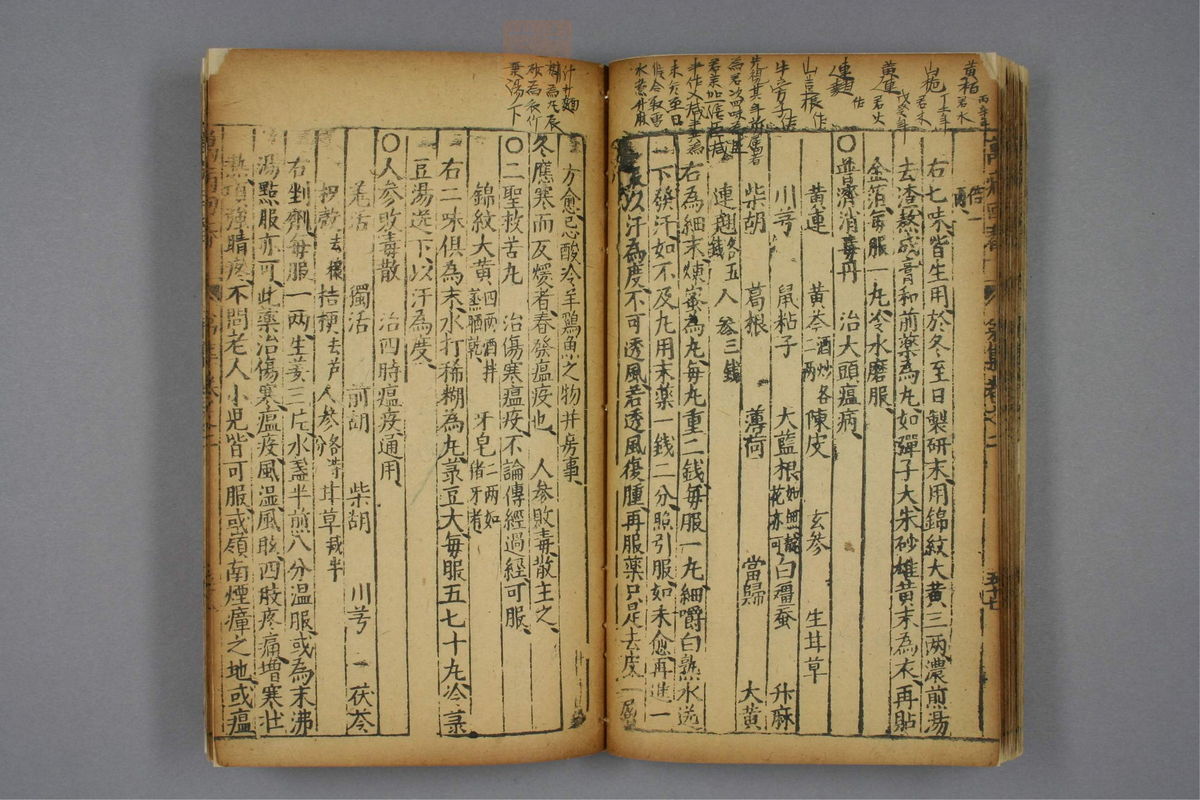 黃栢
君水
丙辛年
山梔
君木
丁壬年
黃連
君火
戊癸年
連翹
作
山豆根作
牛旁子作
倍一
右七味皆生用於冬至日製研末用錦紋大黃三兩濃煎湯
去渣熬成膏和前藥為丸如彈子大朱砂雄黃末為衣再貼
金箔每服一丸冷水磨服
〇普濟消毒丹 治大頭瘟病
黃連 黃芩 酒炒各二兩 陳皮 玄參 生甘草
川芎 鼠粘子 大藍根 如無靛花亦可 白殭蚕 升麻
柴胡 葛根 薄荷 當歸 大黃
連翹 各五錢 人參三錢
右為細末煉蜜為丸每丸重二錢每服一丸細嚼白熟水送
下發汗如不及丸用末藥一錢二分照引服如未愈再進一
服以汗為度不可透風若透風復腫再服藥只是去皮一層
汁升麵
糊為丸辰
砂為衣竹
葉湯下
方愈忌酸冷羊鷄魚之物并房事
冬應寒而反煖者春發瘟疫也 人參敗毒散主之
〇二聖救苦丸 治傷寒瘟疫不論傳經過經可服
錦紋大黃 四兩酒拌蒸晒乾 牙皂 二兩如猪牙者
右二味俱為末水打稀糊為丸菉豆大每服五七十丸冷菉
豆湯送下以汗為度
〇人參敗毒散 治四時瘟疫通用
羌活 獨活 前胡 柴胡 川芎 茯苓
枳殼 去穰 桔梗 去芦 人參 各等分 甘草 減半
右剉劑每服一兩生姜三片水盞半煎八分溫服或為末沸
湯點服亦可此藥治傷寒瘟疫風溫風眩四肢疼痛增寒壮
熱項強睛疼不問老人小兒皆可服或嶺南煙瘴之地或瘟